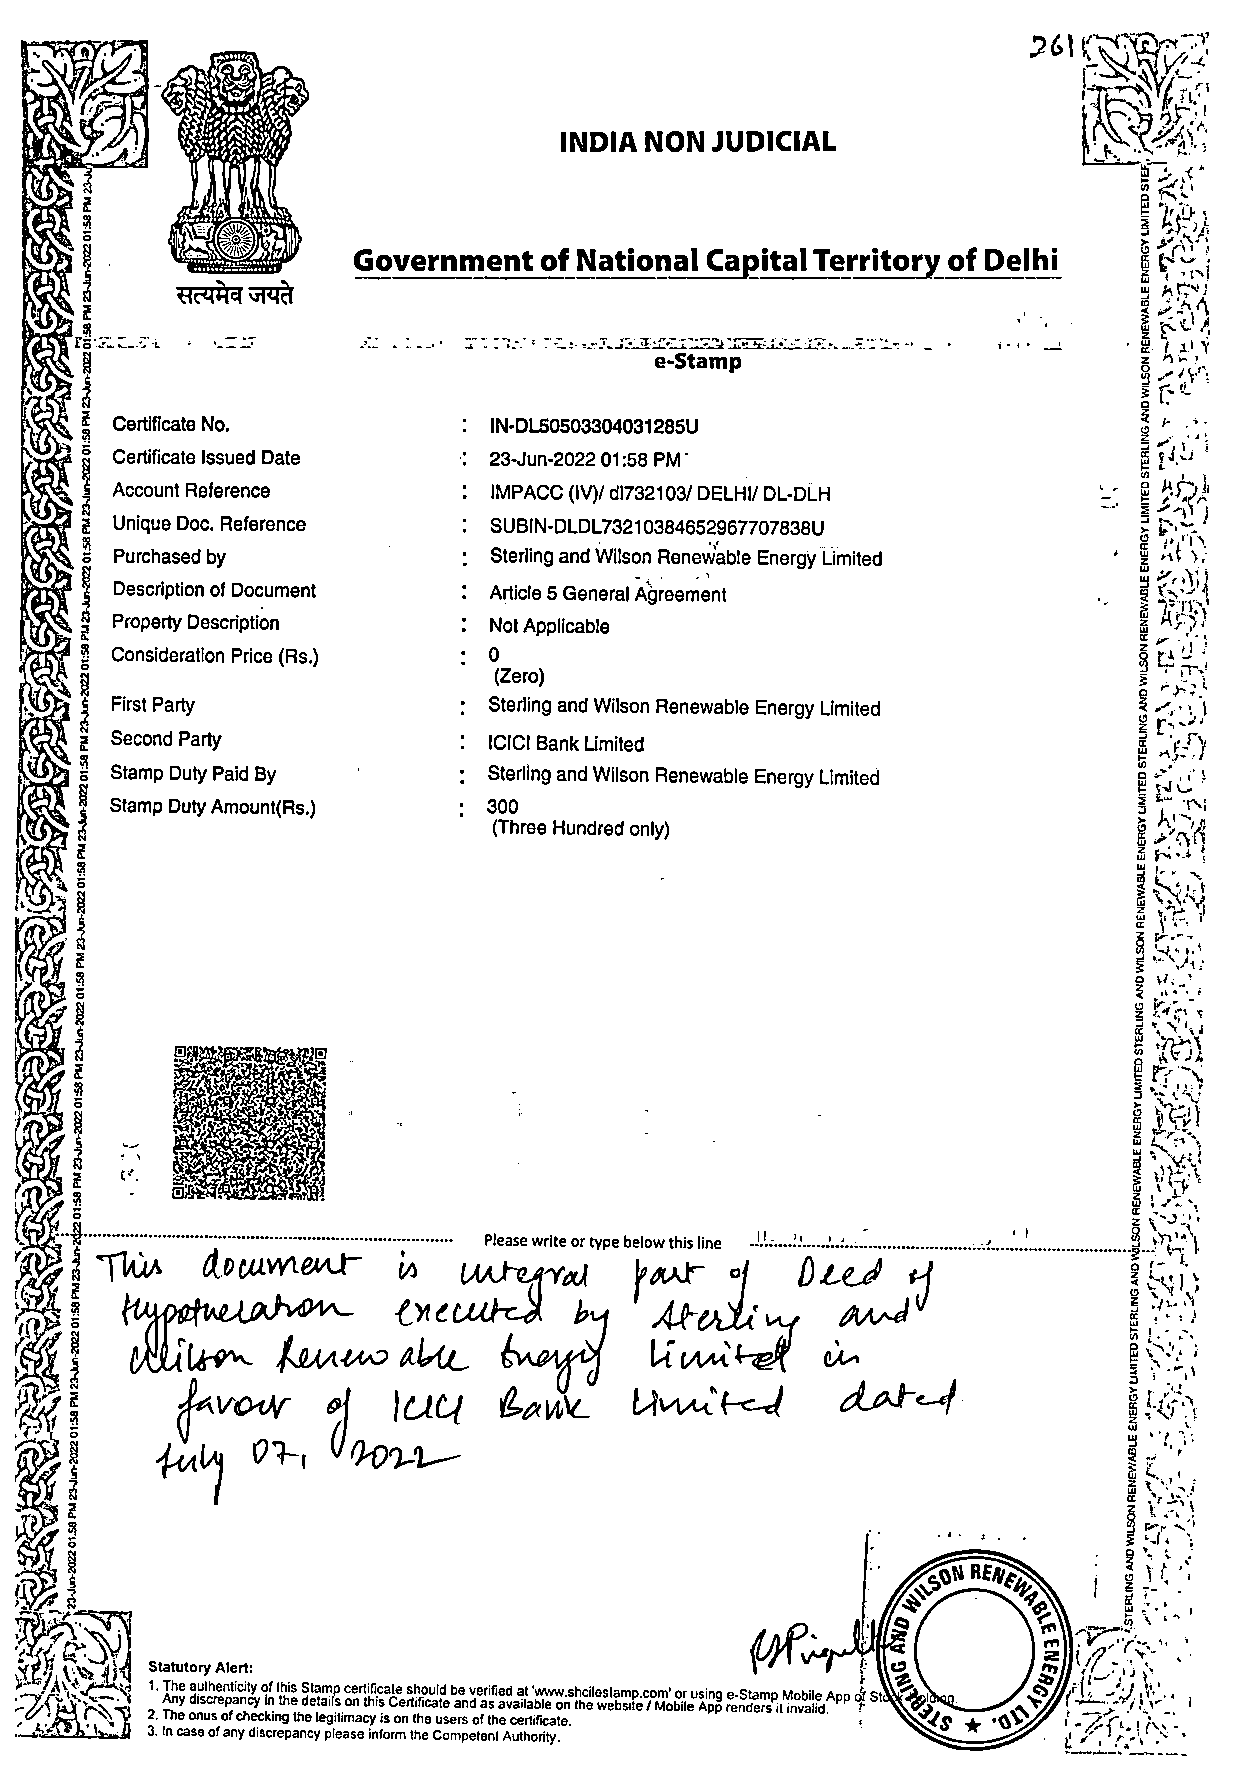 261
INDIA NON JUDICIAL
Government of National Capital Territory of Delhi
सत्यमेव जयते
e-Stamp
Certificate No. : IN-DL50503304031285U
Certificate Issued Date : 23-Jun-2022 01:58 PM
Account Reference : IMPACC (IV)/ dl732103/ DELHI/ DL-DLH
Unique Doc. Reference : SUBIN-DLDL73210384652967707838U
Purchased by : Sterling and Wilson Renewable Energy Limited
Description of Document : Article 5 General Agreement
Property Description : Not Applicable
Consideration Price (Rs.) : 0
(Zero)
First Party : Sterling and Wilson Renewable Energy Limited
Second Party : ICICI Bank Limited
Stamp Duty Paid By : Sterling and Wilson Renewable Energy Limited
Stamp Duty Amount(Rs.) : 300
(Three Hundred only)
Please write or type below this line
This document is integral part of Deed of
Hypothecation executed by Sterling and
Wilson Renewable Energy Limited in
favour of ICICI Bank Limited dated
July 07, 2022
STERLING AND WILSON RENEWABLE ENERGY LTD.
Statutory Alert:
1. The authenticity of this Stamp certificate should be verified at 'www.shcilestamp.com' or using e-Stamp Mobile App of Stock Holding.
Any discrepancy in the details on this Certificate and as available on the website / Mobile App renders it invalid.
2. The onus of checking the legitimacy is on the users of the certificate.
3. In case of any discrepancy please inform the Competent Authority.